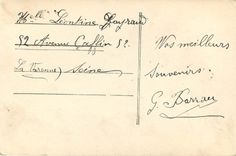 Mlle Léontine Peyraud
52 Avenue 52
La Varenne) Seine
Vos meilleurs
Souvenirs
G. Barrau